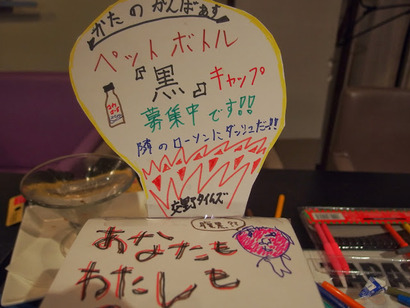 かたのかんばあす
ペットボトル
『黒』キャップ
募集中です!!
隣のローソンにダッシュだっ!!
交野タイムズ
あなたも
わたしも